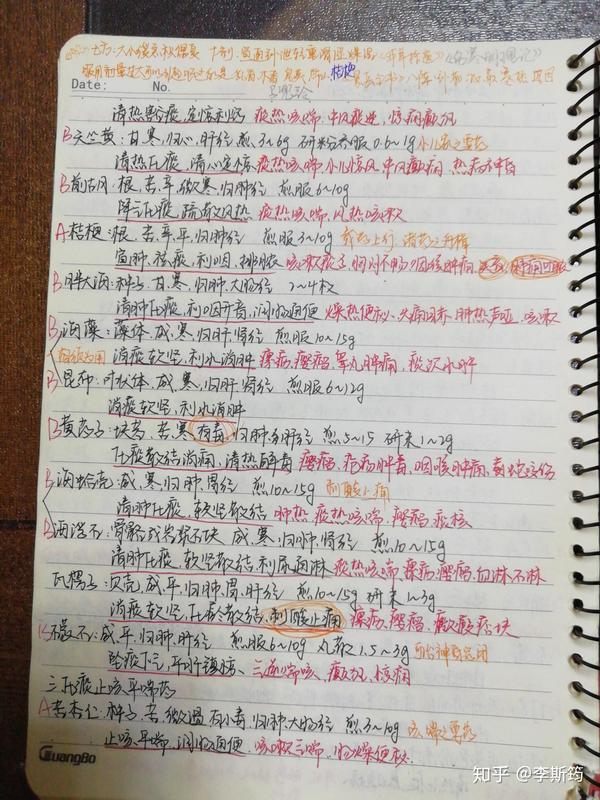 Date: No.
清热豁痰,定惊利窍 痰热咳喘,中风痰迷,惊痫癫狂
B天竺黄:甘,寒,归心,肝经 煎3~6g 研粉吞服0.6~1g
清热化痰,清心定惊 痰热咳喘,小儿惊风,中风癫痫,热病神昏
B前胡:根,苦,辛,微寒,归肺经 煎服6~10g
降气化痰,疏散风热 痰热咳喘,风热咳嗽
A桔梗:根,苦,辛,平,归肺经 煎服3~10g
宣肺,祛痰,利咽,排脓 咳嗽痰多,胸闷不畅,咽痛
B胖大海:种子,甘,寒,归肺,大肠经 2~4枚
清肺化痰,利咽开音,润肠通便 燥热便秘,头痛目赤,肺热声哑,咳嗽
B海藻:藻体,咸,寒,归肝,肾经 煎服10~15g
消痰软坚,利水消肿 瘰疬,瘿瘤,睾丸肿痛,痰饮水肿
B昆布:叶状体,咸,寒,归肝,肾经 煎服6~12g
消痰软坚,利水消肿
B黄药子:块茎,苦,寒,有毒,归肺,肝经 煎5~15 研末1~2g
化痰散结消瘿,清热解毒 瘿瘤,疮疡肿毒,咽喉肿痛,毒蛇咬伤
B海蛤壳:咸,寒,归肺,胃经 煎10~15g 制酸止痛
清肺化痰,软坚散结 肺热,痰热咳喘,瘿瘤,痰核
B海浮石:咸,寒,归肺,肾经 煎10~15g
清肺化痰,软坚散结,利尿通淋 痰热咳喘,瘰疬,瘿瘤,血淋石淋
瓦楞子:贝壳,咸,平,归肺,胃,肝经 煎10~15g 研末1~3g
消痰软坚,化瘀散结,制酸止痛 瘰疬,瘿瘤,癥瘕痞块
礞石:咸,平,归肺,肝经 煎服6~10g 丸散1.5~3g
坠痰下气,平肝镇惊 癫狂,惊痫
三化痰止咳平喘药
A苦杏仁:种子,苦,微温,有小毒,归肺,大肠经 煎3~10g
止咳平喘,润肠通便 咳嗽气喘,肠燥便秘
GuangBo
知乎 @李斯筠